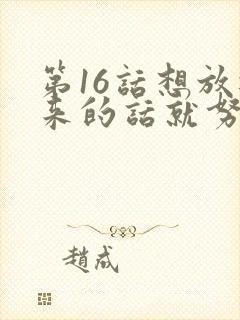 第16話想放
来的話就努
趙成